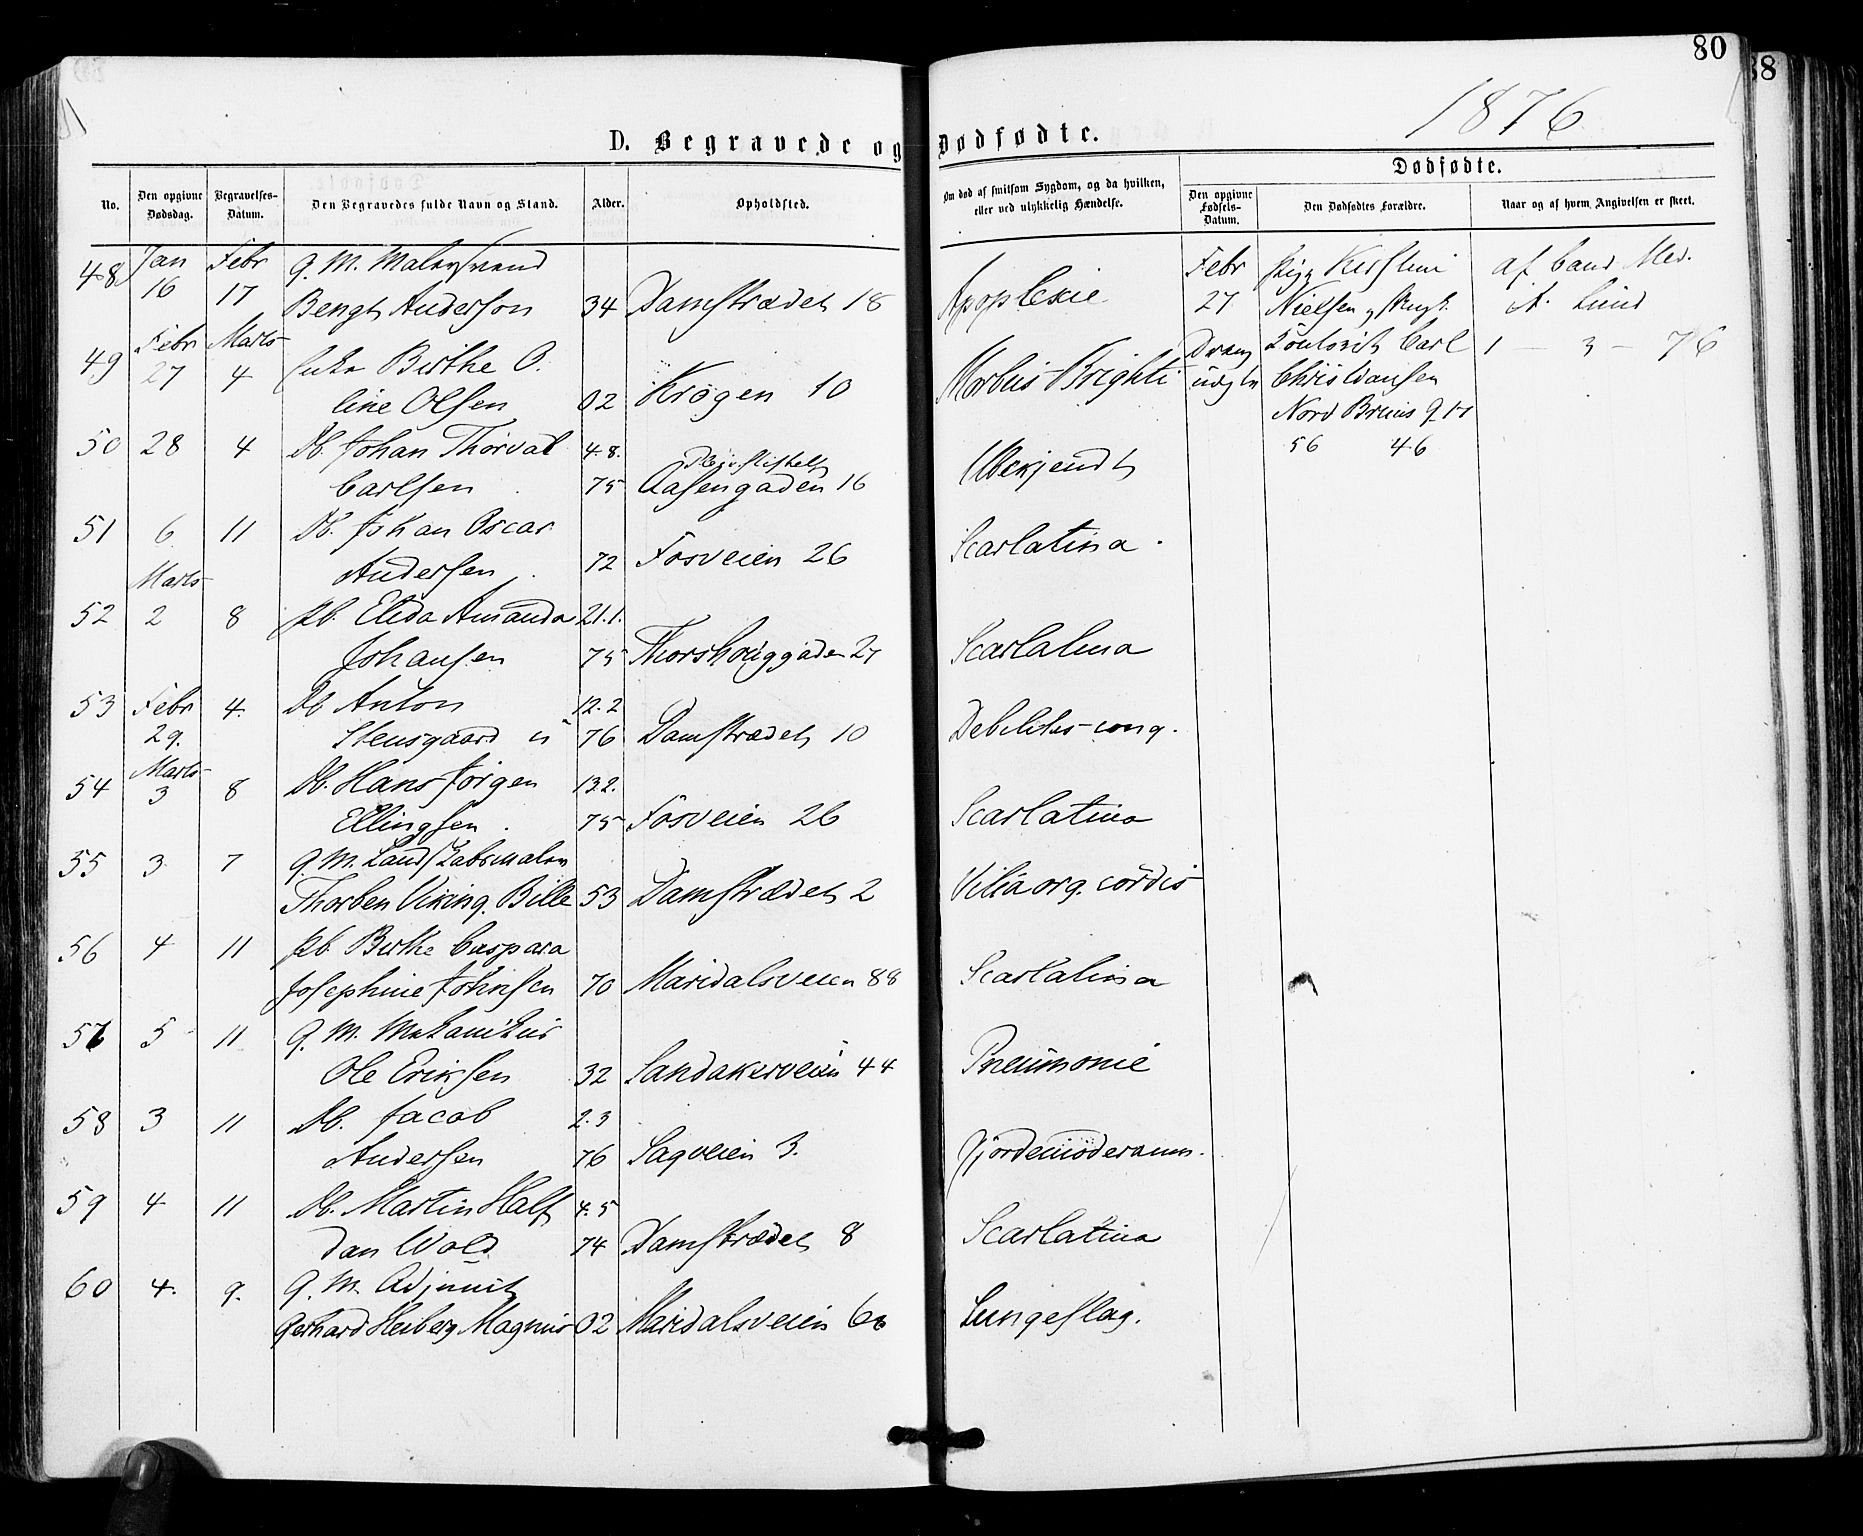 80
88
1876
D. Begravede og Dødfødte.
No.
Den opgivne Dødsdag.
Begravelses-Datum.
Den Begravedes fulde Navn og Stand.
Alder.
Opholdsted.
Om død af smitsom Sygdom, og da hvilken,
eller ved ulykkelig Hændelse.
Dødfødte.
Den opgivne Fødsels-Datum.
Den Dødfødtes Forældre.
Naar og af hvem Angivelsen er skeet.
48 Jan Febr g. M.
16 17 Bengt Anderson 34 Damstrædet 18 Apoplexie
49 Febr Marts Enke Birthe O.
27 4 line Olsen 02 Krogen 10 Morbus Brighti
50 28 4 Db. Johan Thorval 4.8.
Carlsen 75 Aasengaden 16 Ubekjendt
51 6 11 Db. Johan Oscar
Andersen 72 Fosveien 26 Scarlatina
Marts
52 2 8 Pb. Elida Amanda 21.1.
Johansen 75 Thorshouggaden 27 Scarlatina
53 Febr 4. Db Anton 12.2
29. Stensgaard u 76 Damstrædet 10 Debilitas cong.
54 Marts
3 8 Db. Hans Jørgen 13.2.
Ellingsen 75 Fosveien 26 Scarlatina
55 3 7 g. M.
Thorben Viking Bille 53 Damstrædet 2 Vitia org. cordis
56 4 11 Pb Birthe Caspara
Josephine Johnsen 70 Maridalsveien 88 Scarlatina
57 5 11 g. M. Mekanikus
Ole Eriksen 32 Sandakerveien 44 Pneumonie
58 3 11 Db. Jacob 2.3
Andersen 76 Sagveien 3. Gjordemoderanm.
59 4 11 Db. Martin Half 4.5
dan Wold 74 Damstrædet 8 Scarlatina
60 4. 9. g. M. Adjunct
Gerhard Heiberg Magnus 02 Maridalsveien Lungeslag.
Febr Pige Kirstine af Cand Med.
27 Nielsen A. Lund
Dreng Carl 1 - 3 - 76
Christiansen
56 46